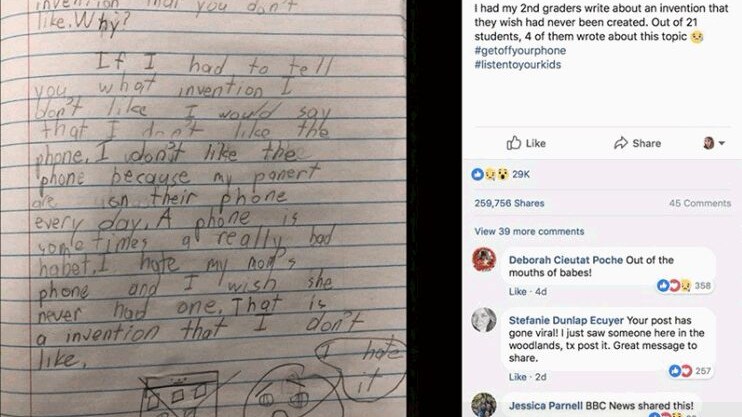 invention that you don't
like. Why?
If I had to tell
you what invention I
don't like I would say
that I don't like the
phone. I don't like the
phone because my panert
are on their phone
every day. A phone is
sometimes a really bad
habet. I hate my mom's
phone and I wish she
never had one. That is
a invention that I don't
like.
I hate
it
I had my 2nd graders write about an invention that
they wish had never been created. Out of 21
students, 4 of them wrote about this topic 😢
#getoffyourphone
#listentoyourkids
Like
Share
29K
259,756 Shares
45 Comments
View 39 more comments
Deborah Cieutat Poche Out of the
mouths of babes!
358
Like · 4d
Stefanie Dunlap Ecuyer Your post has
gone viral! I just saw someone here in the
woodlands, tx post it. Great message to
share.
257
Like · 2d
Jessica Parnell BBC News shared this!